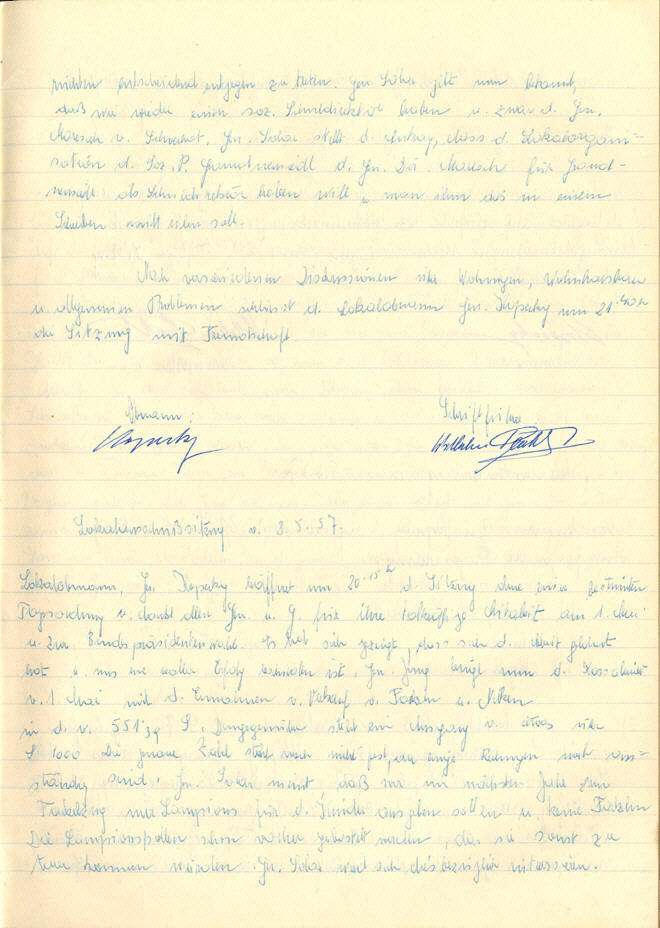 entscheidend entgegen zu treten. Gen. Solar gibt nun bekannt,
daß wir wieder einen soz. Schuldirektor haben u. zwar d. Gen.
Maresch v. Schwechat, Gen. Solar stellt d. Antrag, dass d. Lokalorgani-
sation d. Soz. P. Gramatneusiedl d. Gen. Dir. Maresch für Gramat-
neusiedl als Schuldirektor haben will u. man ihm das in einem
Schreiben mitteilen soll.
Nach verschiedenen Diskussionen über Wohnungen, Wohnhausbau
u. allgemeinen Problemen schliesst d. Lokalobmann Gen. Kopecky um 21.40 h
die Sitzung mit Freundschaft.
Obmann: Schriftführer
Kopecky
Lokalausschußsitzung v. 8.5.57.
Lokalobmann, Gen. Kopecky eröffnet um 20.15 h d. Sitzung ohne einer bestimmten
Tagesordnung u. dankt allen Gen. u. G. für ihre tatkräftige Mitarbeit am 1. Mai
u. zur Bundespräsidentenwahl. Es hat sich gezeigt, dass sich d. Arbeit gelohnt
hat u. uns ein voller Erfolg beschieden ist. Gen. Jung bringt nun d. Kassabericht
v. 1 Mai mit d. Einnahmen v. Verkauf v. Fackeln u. Nelken
in d. v. 551.39 S. Demgegenüber steht ein Ausgang v. etwas über
S 1000 Die genaue Zahl steht noch nicht fest, da einige Rechnungen noch aus-
ständig sind. Gen. Solar meint, daß wir im nächsten Jahr zum
Fackelzug nur Lampions für d. Kinder ausgeben sollen u. keine Fackeln
Die Lampions sollen schon vorher gebastelt werden, da sie sonst zu
teuer kommen würden. Gen. Solar wird sich diesbezüglich interessieren.